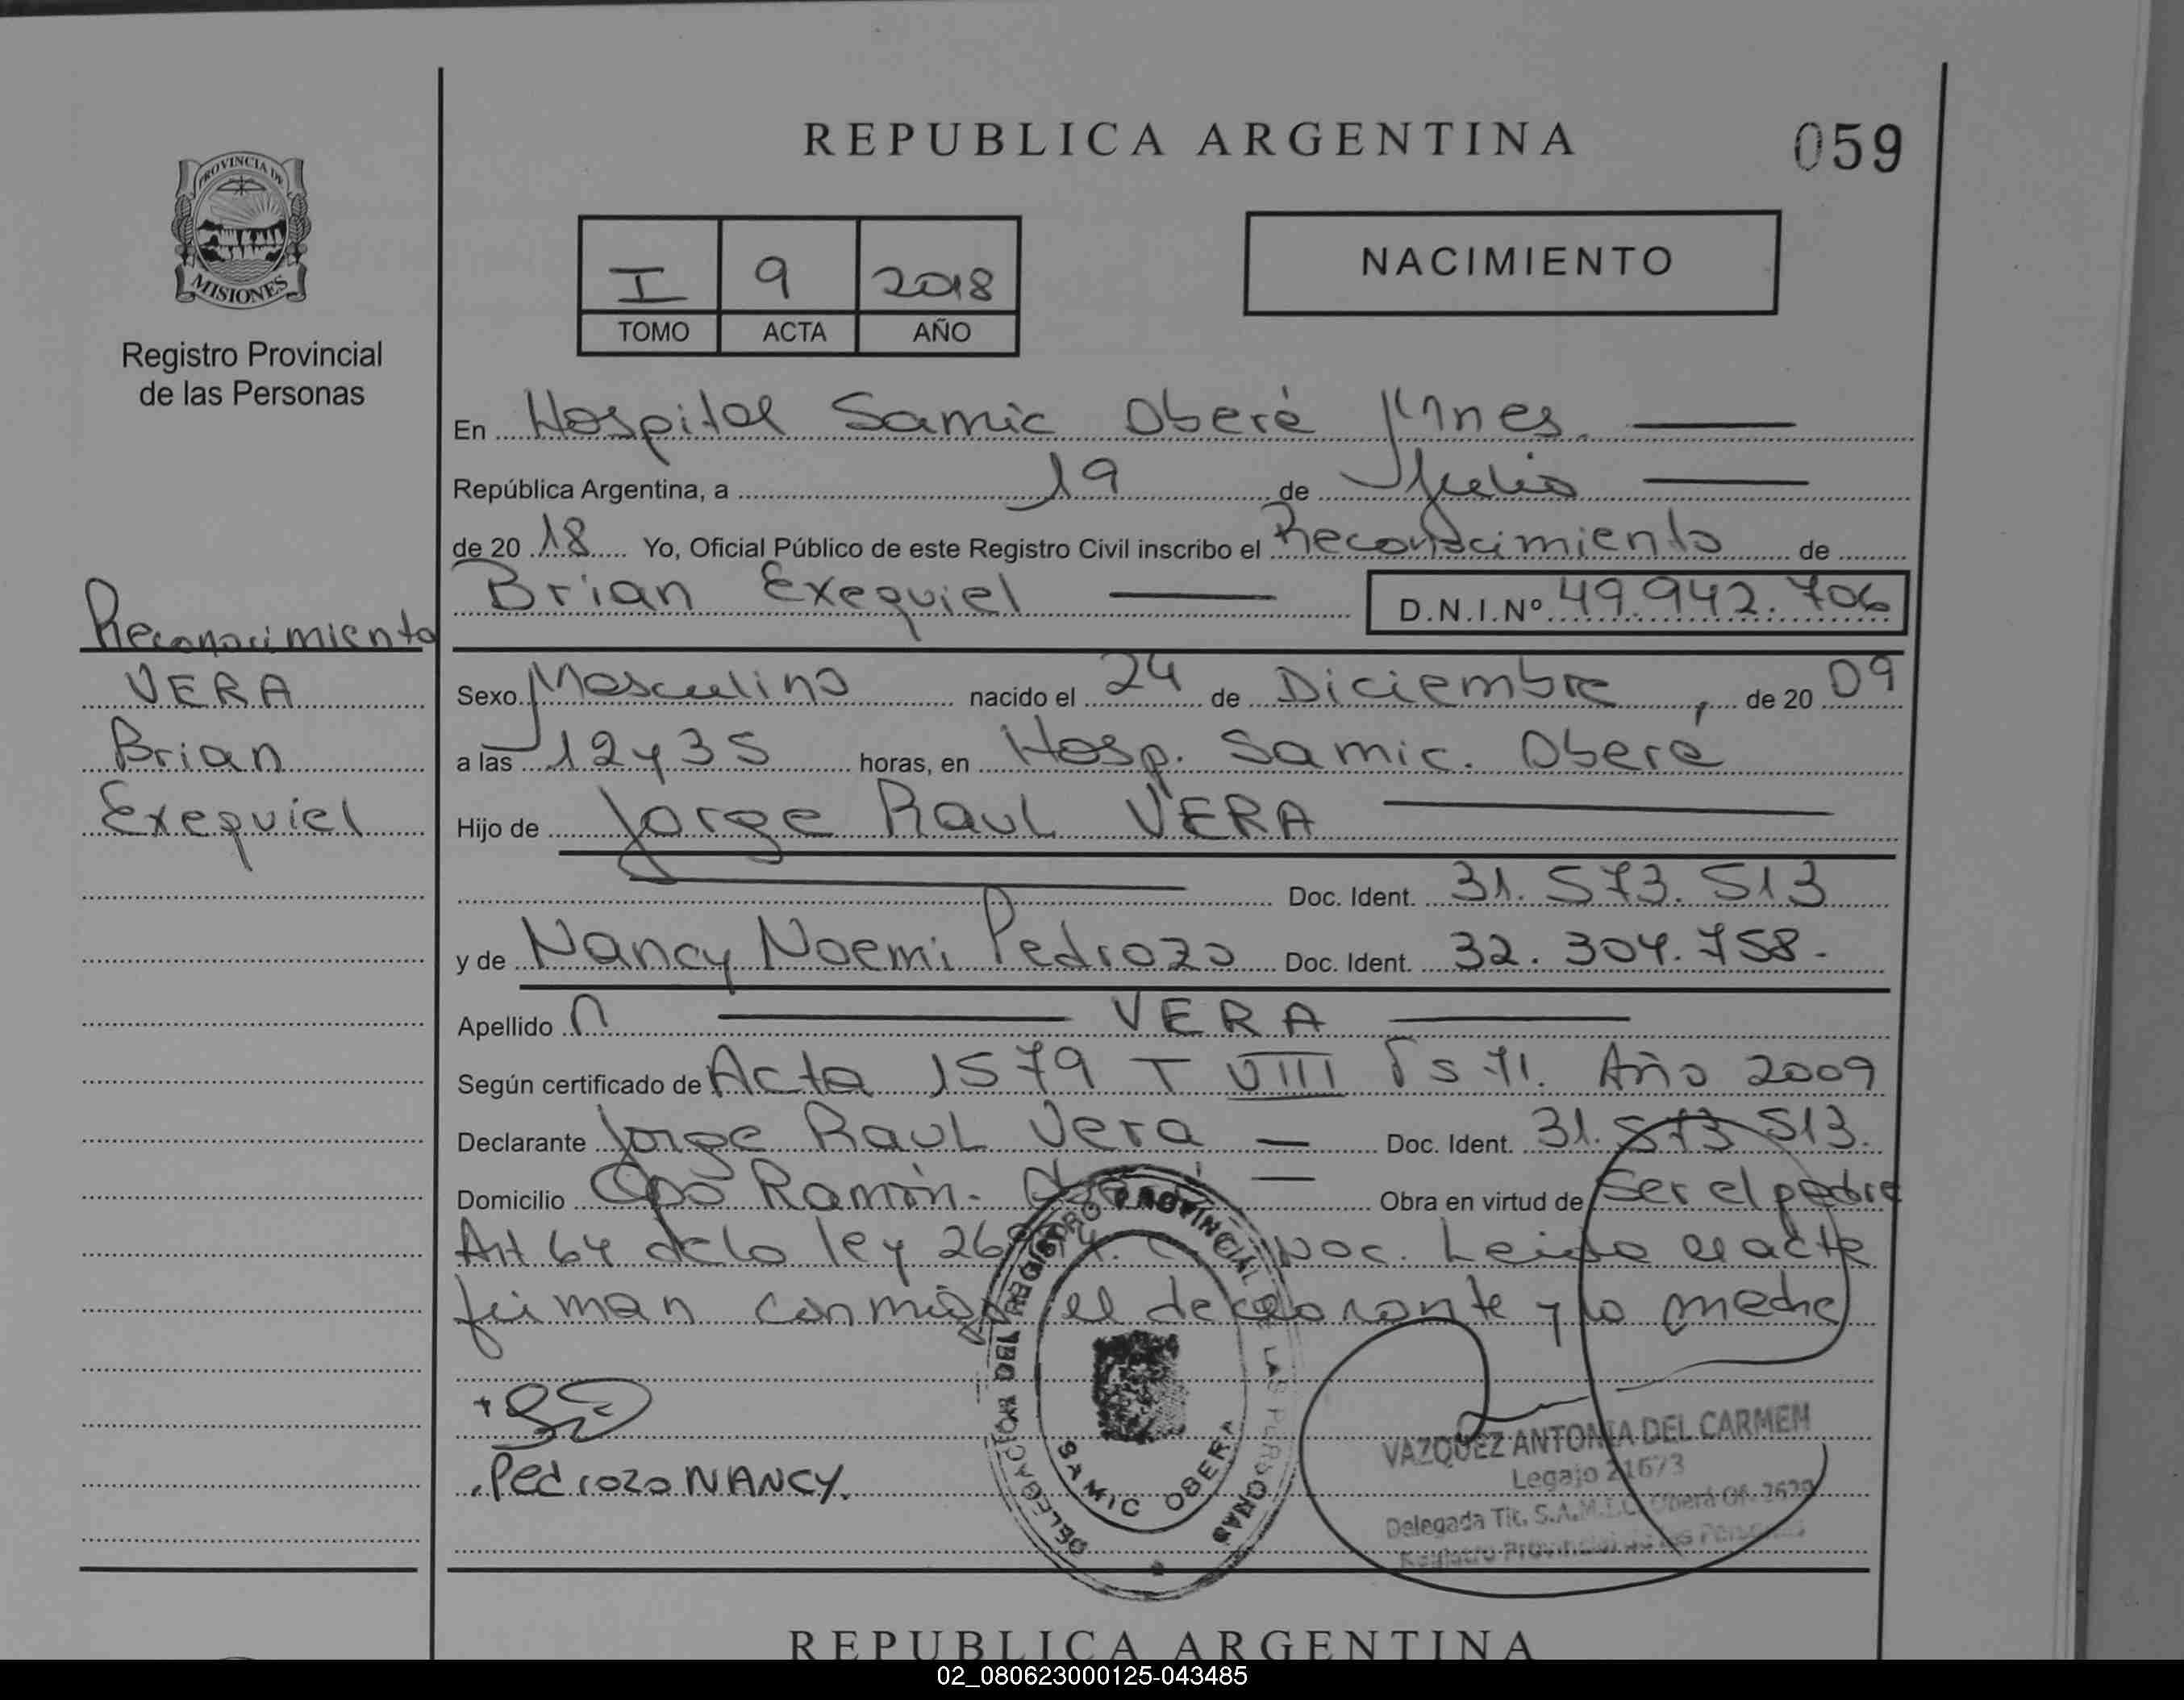 REPUBLICA ARGENTINA
059
PROVINCIA DE
MISIONES
Registro Provincial
de las Personas
I 9 2018
TOMO ACTA AÑO
NACIMIENTO
En Hospital Samic Oberá Mnes.
República Argentina, a 19 de Julio
de 20 18 Yo, Oficial Público de este Registro Civil inscribo el Reconocimiento de
Brian Exequiel D.N.I.Nº 49.942.706
Reconocimiento
VERA
Brian
Exequiel
Sexo Masculino nacido el 24 de Diciembre, de 20 09
a las 12 y 35 horas, en Hosp. Samic. Oberá
Hijo de Jorge Raul VERA
Doc. Ident. 31.573.513
y de Nancy Noemi Pedrozo Doc. Ident. 32.304.758.
Apellido VERA
Según certificado de Acta 1579 T VIII Fs 71. Año 2009
Declarante Jorge Raul Vera Doc. Ident. 31.573.513.
Domicilio Cpo Ramón. Obra en virtud de Ser el padre
Art 64 de la ley 26 Leida el acta
firman conmigo el declarante y la madre
Pedrozo NANCY.
DELEGACION DEL REGISTRO PROVINCIAL DE LAS PERSONAS
SAMIC OBERA
VAZQUEZ ANTONIA DEL CARMEN
Legajo 21673
Delegada Tit. S.A.M.I.C. Oberá Of. 2629
Registro Provincial de las Personas
REPUBLICA ARGENTINA
02_080623000125-043485